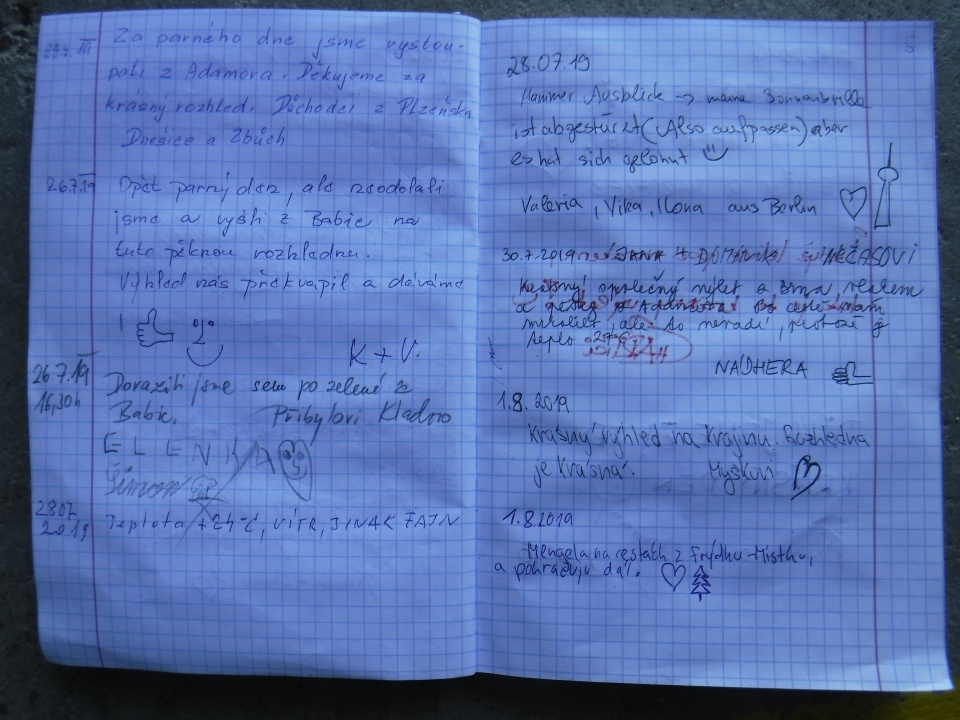 Za parného dne jsme vystou-
pali z Adamova. Děkujeme za
krásný rozhled. Důchodci z Plzeňska
Dnešice a Zbůch
26.7.19
Opět parný den, ale neodolali
jsme a vyšli z Babic na
tuto pěknou rozhlednu.
Výhled nás překvapil a dáváme
!
K + V.
26.7.19
16,30h
Dorazili jsme sem po zelené z
Babic. Přibylovi Kladno
ELENKA
Šimon
28.07
2019
Teplota +24°C, VÍTR, JINAK FAJN
5
28.07.19
Hammer Ausblick → meine Sonnenbrille
ist abgestürzt (Also aufpassen) aber
es hat sich gelohnt
Valeria, Vika, Ilona aus Berlin
30.7.2019 JANA + DOMINIK NEČASOVI
Krásný společný výlet z Brna vlakem
a pěšky z Adamova.
ale to nevadí, protože je
teplo 27°C
NÁDHERA
1.8. 2019
Krásný výhled na krajinu. Rozhledna
je krásná. Myškovi
1.8.2019
na cestách z Frýdku-Místku,
a pokračuju dál.